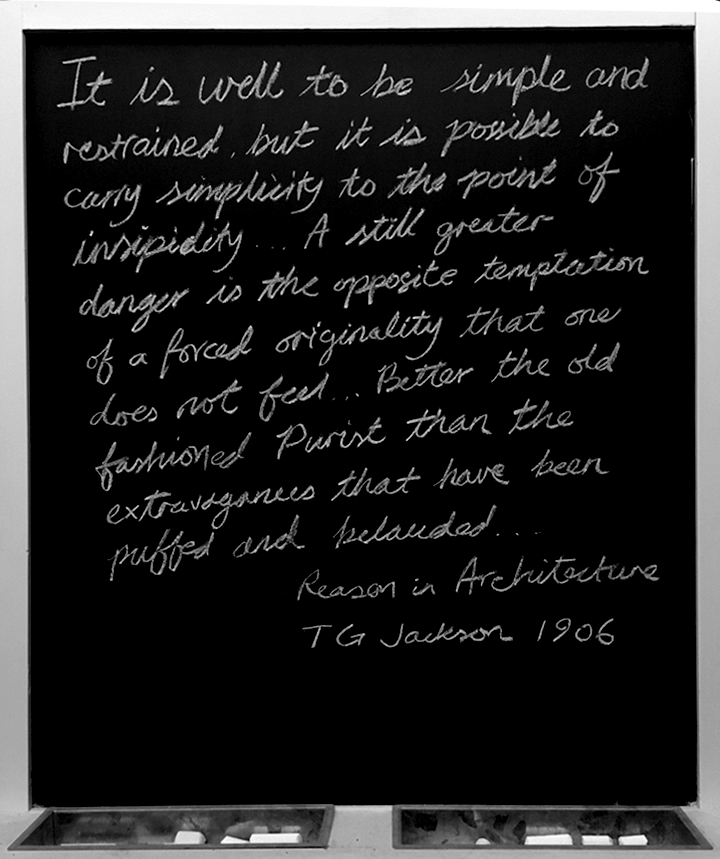 It is well to be simple and
restrained, but it is possible to
carry simplicity to the point of
insipidity... A still greater
danger is the opposite temptation
of a forced originality that one
does not feel... Better the old
fashioned Purist than the
extravagances that have been
puffed and belauded...
Reason in Architecture
TG Jackson 1906